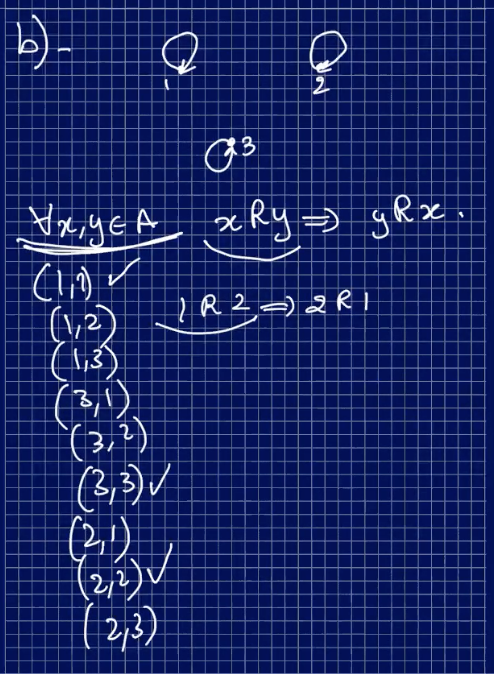 b)-
1 2
3
∀x,y∈A xRy ⇒ yRx.
(1,1) ✓
(1,2) 1R2 ⇒ 2R1
(1,3)
(3,1)
(3,2)
(3,3) ✓
(2,1)
(2,2) ✓
(2,3)